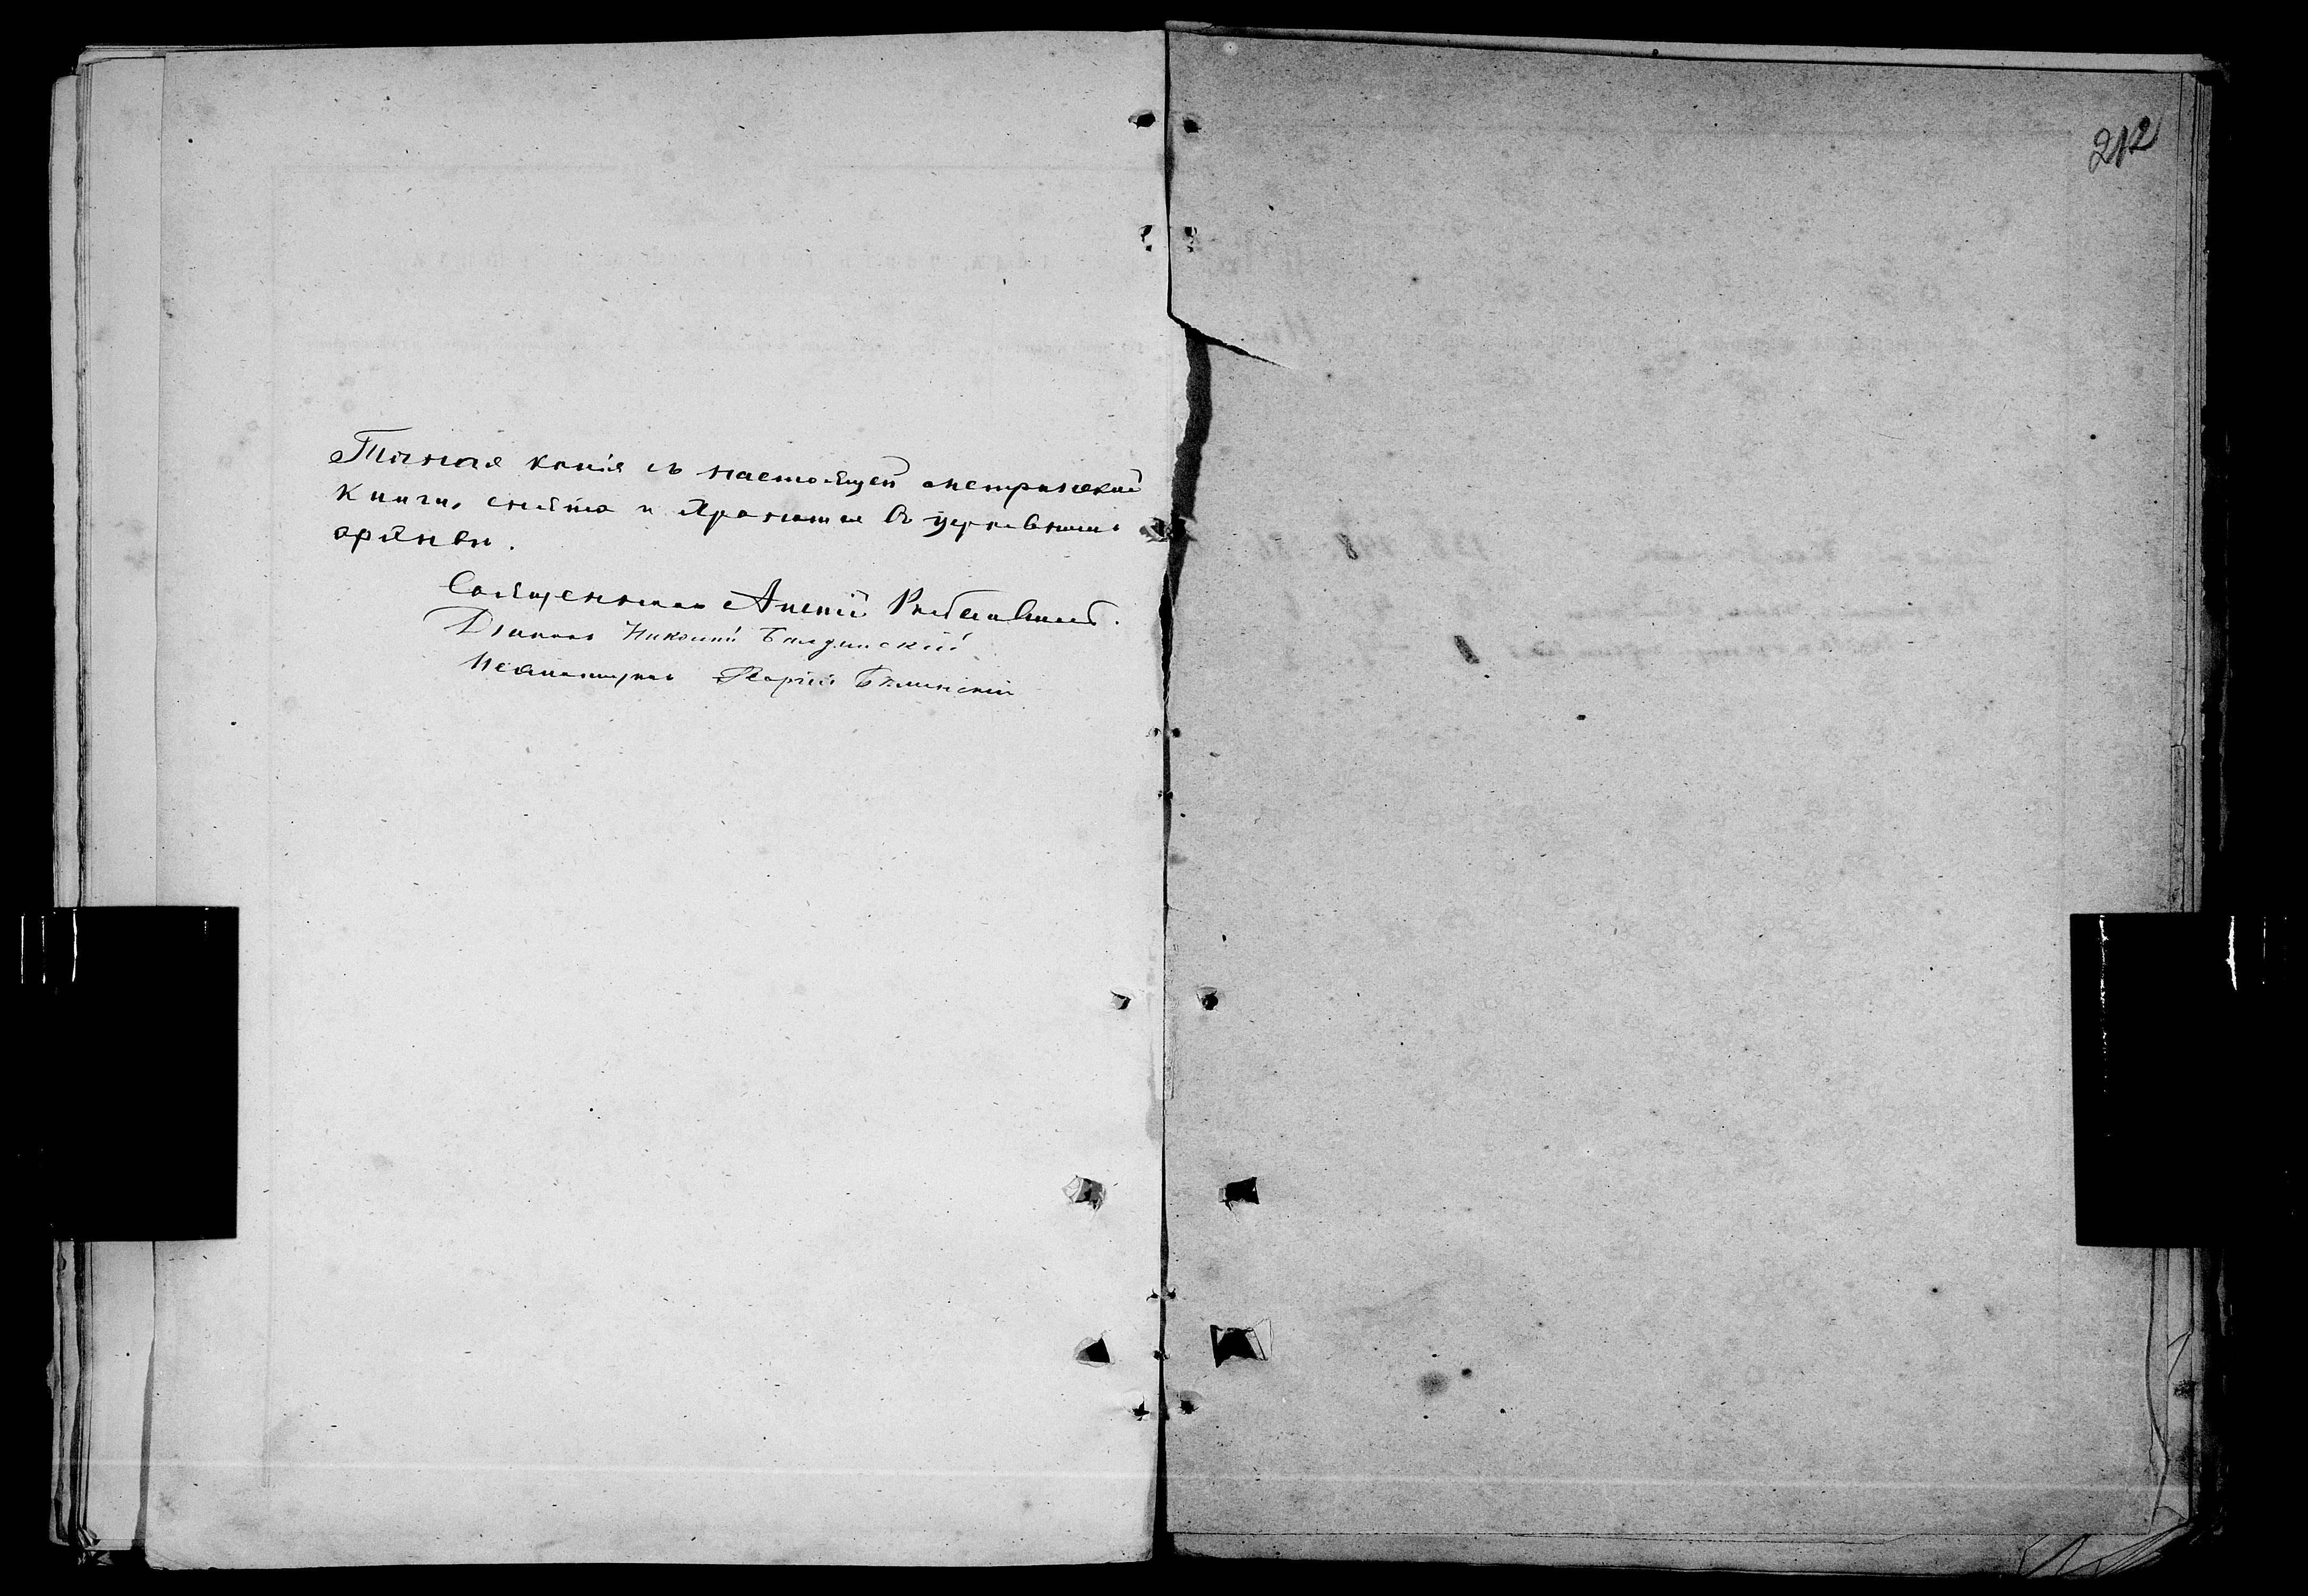 212
Точная копія съ настоящей метрической
книги снята и хранится въ церковномъ
архивѣ.
Священникъ
Діаконъ Николай
Псаломщикъ Георгій Бѣлинскій